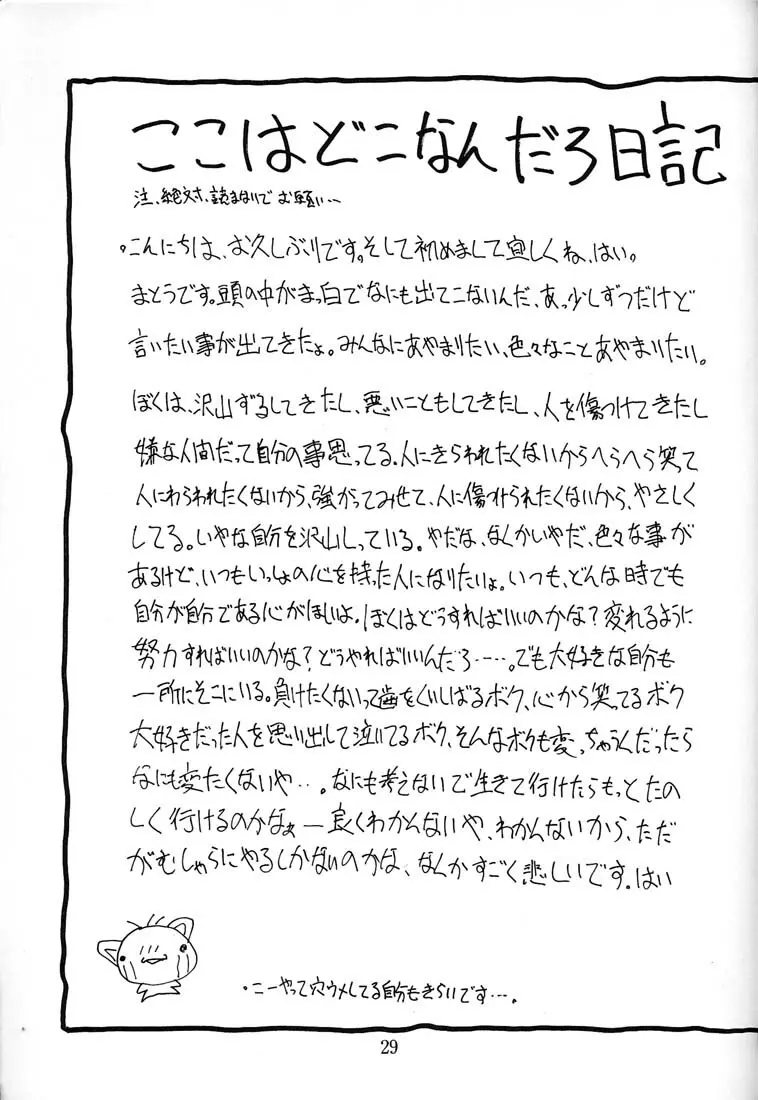 ここはどこなんだろ日記
注、絶対、読まないで お願い…
・こんにちは、お久しぶりです。そして初めまして宜しくね、はい。
まとうです。頭の中がまっ白でなにも出てこないんだ、あっ少しずつだけど
言いたい事が出てきたよ。みんなにあやまりたい、色々なことあやまりたい。
ぼくは、沢山ずるしてきたし、悪いこともしてきたし、人を傷つけてきたし
嫌な人間だって自分の事思ってる。人にきらわれたくないからへらへら笑て
人にわらわれたくないから、強がってみせて、人に傷つけられたくないから、やさしく
してる。いやな自分を沢山しっている。やだな、なんかいやだ、色々な事が
あるけど、いつもいっしょの心を持った人になりたいよ。いつも、どんな時でも
自分が自分である心がほしいよ。ぼくはどうすればいいのかな?変れるように
努力すればいいのかな?どうやればいいんだろ……。でも大好きな自分も
一所にそこにいる。負けたくないって歯をくいしばるボク、心から笑ってるボク
大好きだった人を思い出して泣いてるボク、そんなボクも変っちゃうんだったら
なにも変たくないや…。なにも考えないで生きて行けたらもっとたの
しく行けるのかなぁー良くわかんないや、わかんないから、ただ
がむしゃらにやるしかないのかな、なんかすごく悲しいです。はい
・こーやって穴ウメしてる自分もきらいです…。
29